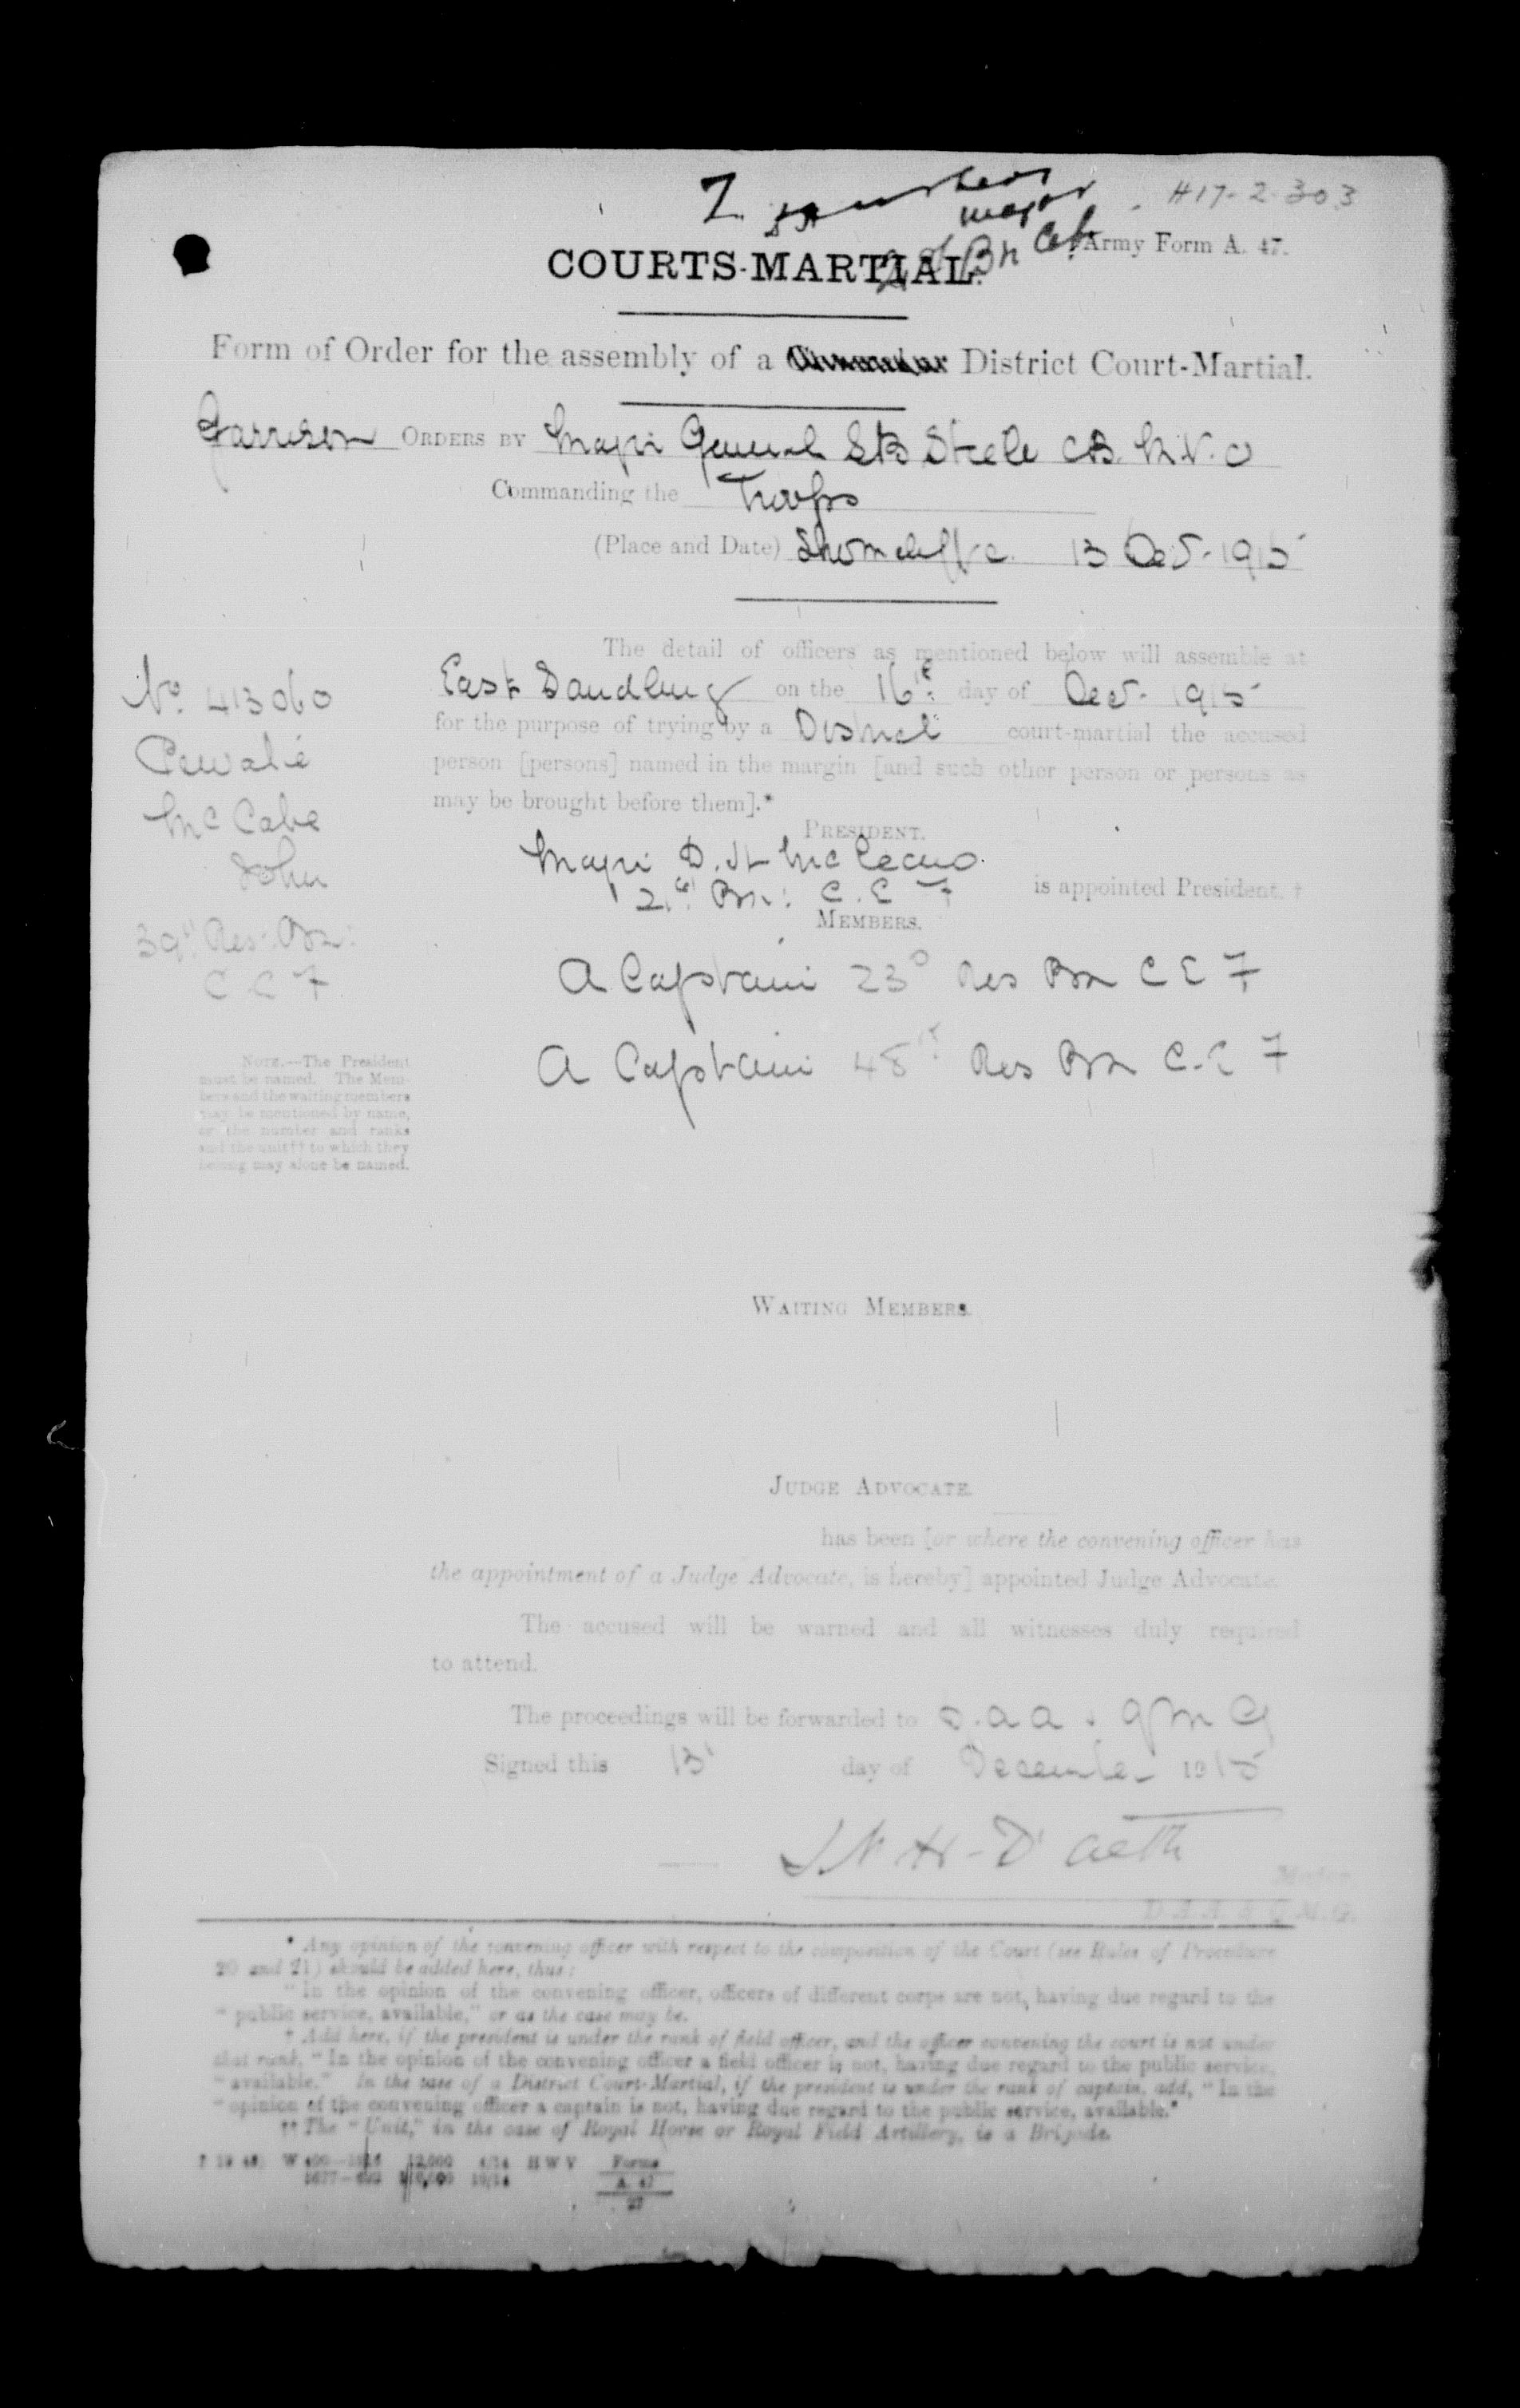 Z
Major
H17-2-303
Bn
Army Form A. 47.
COURTS-MARTIAL.
Form of Order for the assembly of a District Court-Martial.
Garrison ORDERS BY Major General SB Steele CB. M.V.O
Commanding the Troops
(Place and Date) Shorncliffe. 13 Dec. 1915
The detail of officers as mentioned below will assemble at
East Sandling on the 16th day of Dec. 1915
for the purpose of trying by a District court-martial the accused
person [persons] named in the margin [and such other person or persons as
may be brought before them].*
No. 413060
Private
McCabe
John
39th Res. Bn.
C.E.F
PRESIDENT.
Major D.
21st Bn: C.E F is appointed President. †
MEMBERS.
A Captain 23d Res Bn C E F
A Captain 48th Res Bn C.E F
NOTE.—The President
must be named. The Mem-
bers and the waiting members
may be mentioned by name,
or the number and ranks
and the unit†† to which they
belong may alone be named.
WAITING MEMBERS.
JUDGE ADVOCATE.
has been [or where the convening officer has
the appointment of a Judge Advocate, is hereby] appointed Judge Advocate.
The accused will be warned and all witnesses duly required
to attend.
The proceedings will be forwarded to D.A.A. & Q M G
Signed this 13 day of December 1915
D'Aeth
Major
D.A.A. & Q.M.G.
* Any opinion of the convening officer with respect to the composition of the Court (see Rules of Procedure
20 and 21) should be added here, thus:
"In the opinion of the convening officer, officers of different corps are not, having due regard to the
"public service, available," or as the case may be.
† Add here, if the president is under the rank of field officer, and the officer convening the court is not under
that rank, "In the opinion of the convening officer a field officer is not, having due regard to the public service,
"available." In the case of a District Court-Martial, if the president is under the rank of captain, add, "In the
"opinion of the convening officer a captain is not, having due regard to the public service, available."
†† The "Unit," in the case of Royal Horse or Royal Field Artillery, is a Brigade.
12,000 4/14 H W V Forms
10/14 A. 47
27